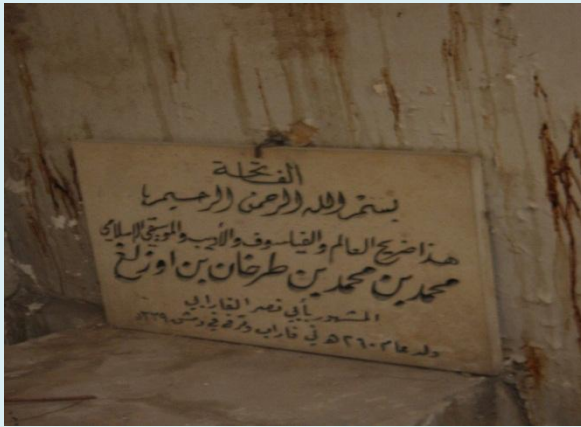 الفاتحة
بسم الله الرحمن الرحيم
هذا ضريح العالم والفيلسوف والأديب والموسيقي الإسلامي
محمد بن محمد بن طرخان بن اوزلغ
المشهور بأبي نصر الفارابي
ولد عام ٢٦٠ هـ في فاراب وتوفي في دمشق ٣٣٩